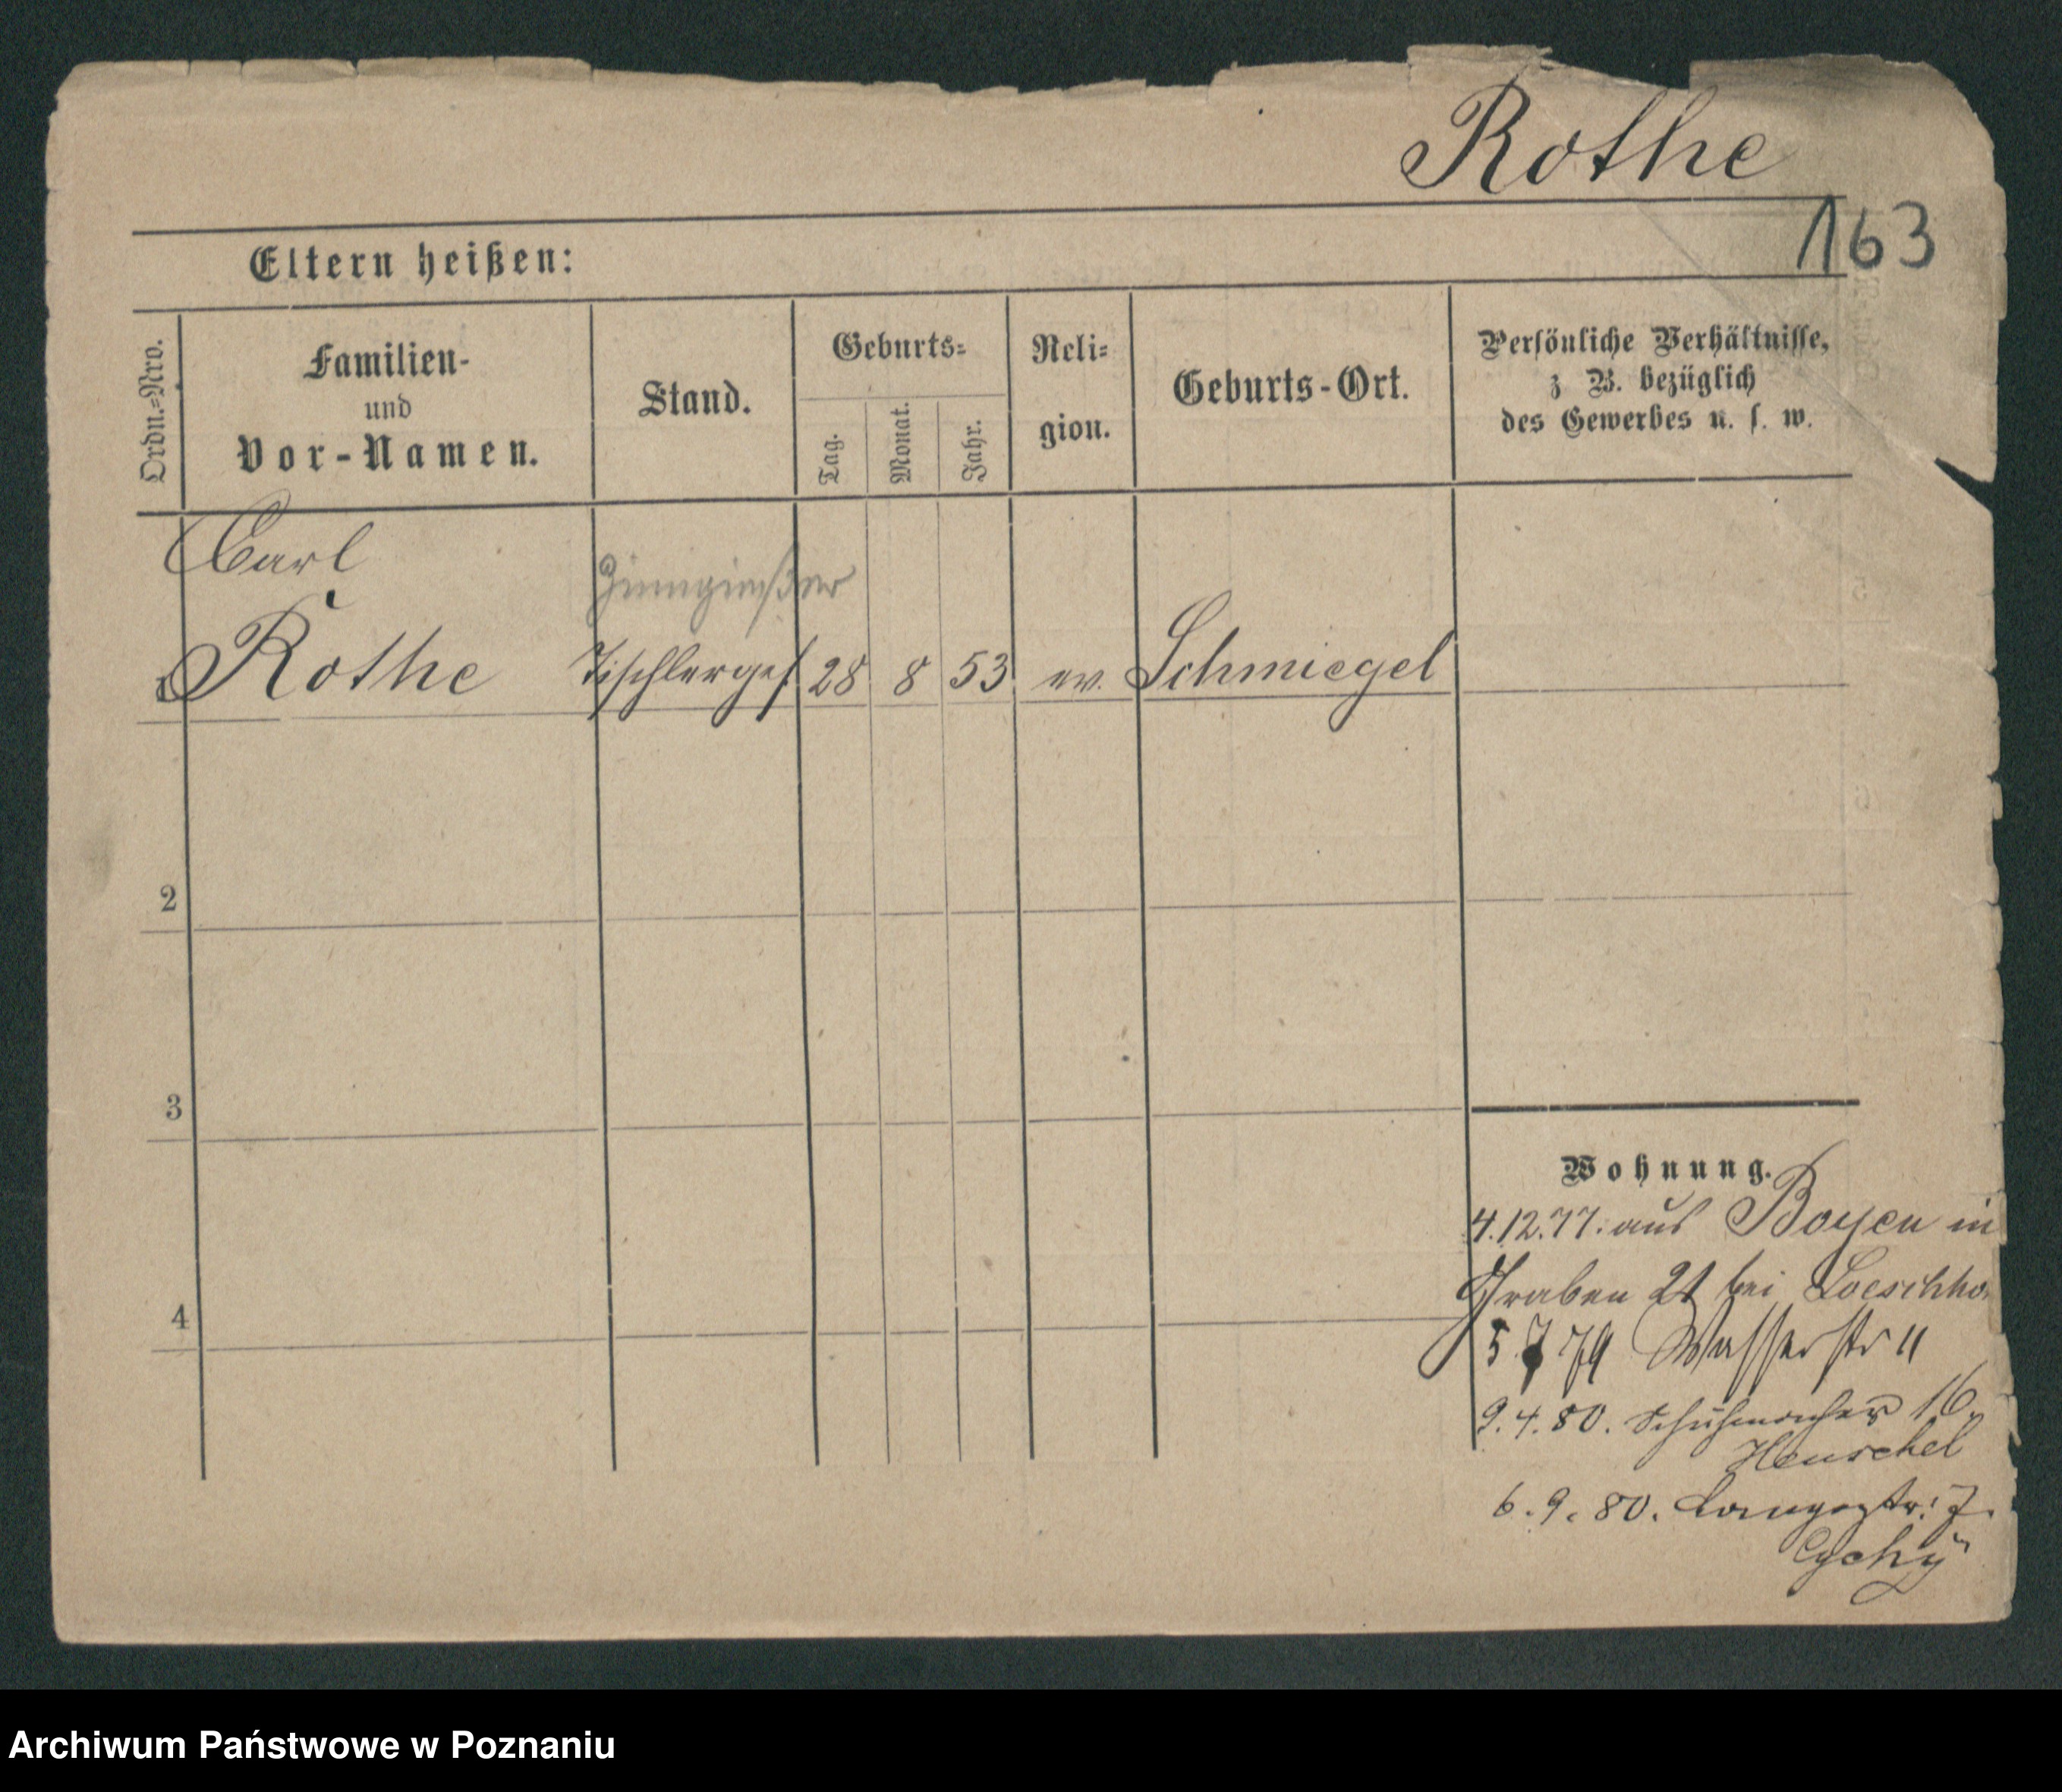 Rothe
163
Eltern heißen:
Ordn.-Nro.
Familien-
und
Vor-Namen.
Stand.
Geburts-
Tag.
Monat.
Jahr.
Reli-
gion.
Geburts-Ort.
Persönliche Verhältnisse,
z. B. bezüglich
des Gewerbes u. s. w.
Carl
Rothe
Zinngießer
Tischlerges
28
8
53
ev.
Schmiegel
2
3
4
Wohnung.
4.12.77. aus Boyen in
Graben 21 bei
5 7 79 Wasserstr 11
9.4.80. Schuhmacher 16.
Henschel
6.9.80. Langestr. 7.
Archiwum Państwowe w Poznaniu